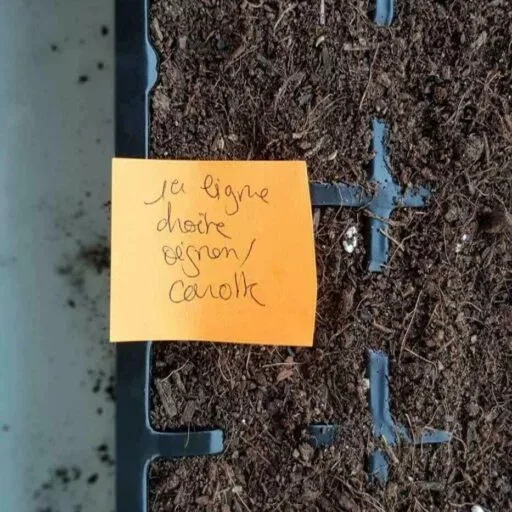 1e ligne
droite
oignon/
carotte